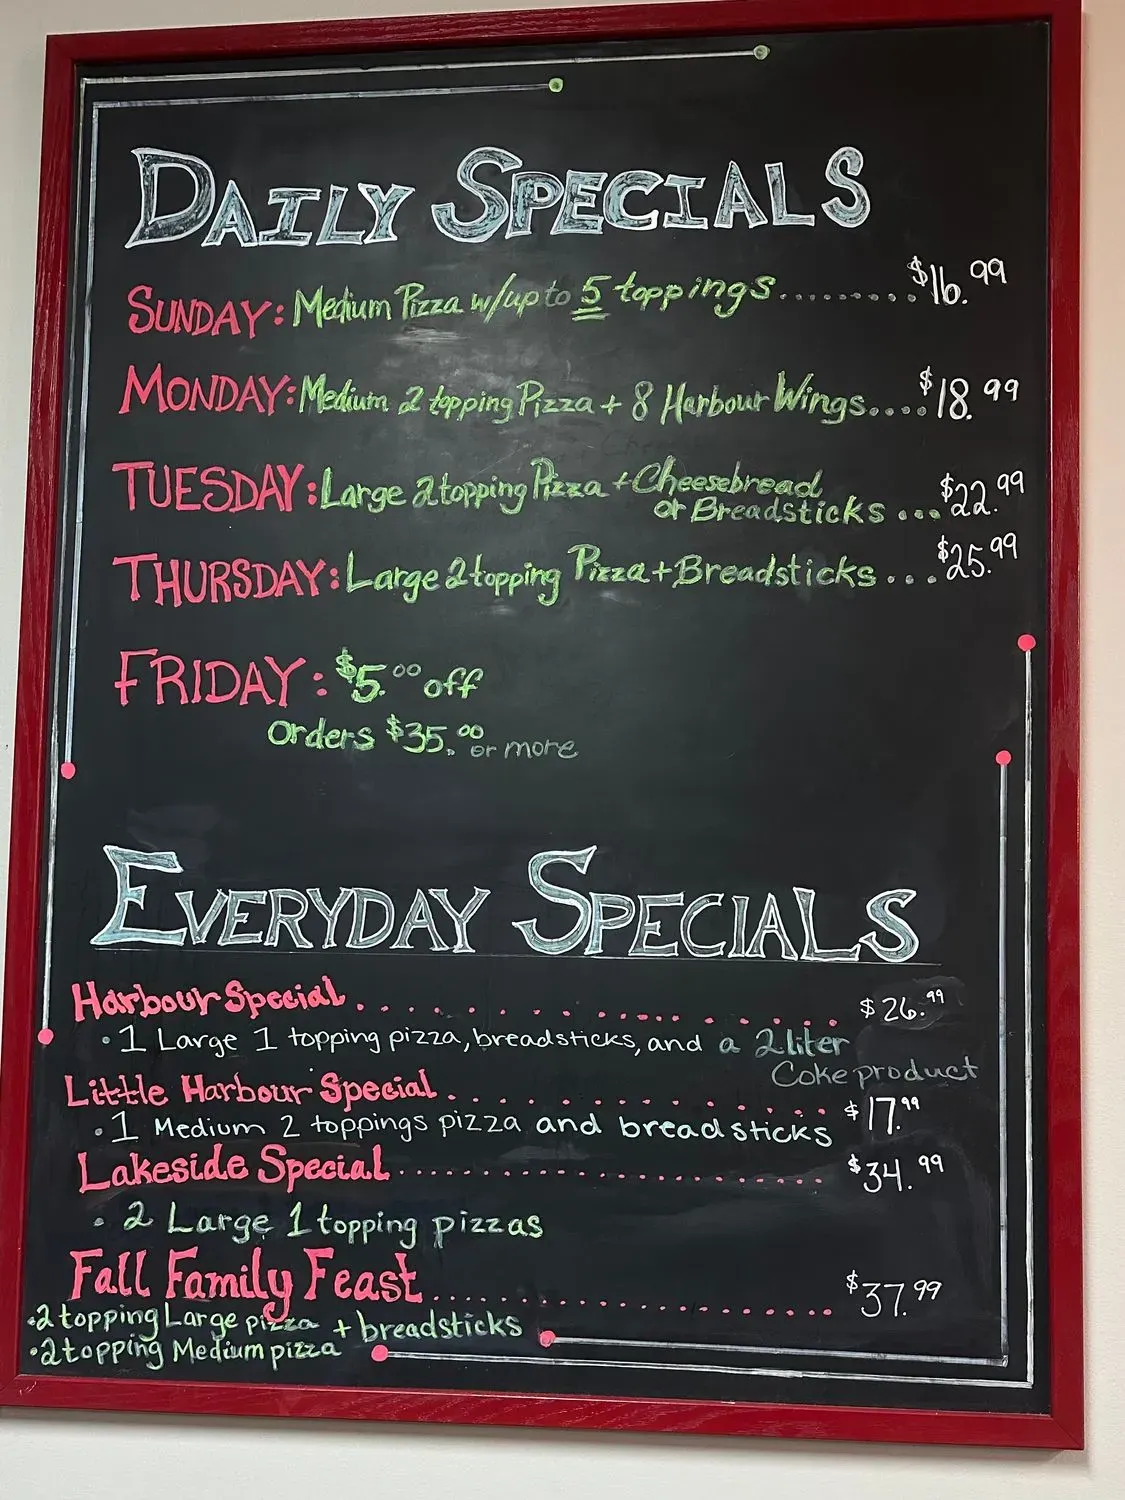 DAILY SPECIALS
SUNDAY: Medium Pizza w/up to 5 toppings.......... $16.99
MONDAY: Medium 2 topping Pizza + 8 Harbour Wings.... $18.99
TUESDAY: Large 2 topping Pizza + Cheesebread
or Breadsticks ... $22.99
THURSDAY: Large 2 topping Pizza + Breadsticks ... $25.99
FRIDAY: $5.00 off
orders $35.00 or more
EVERYDAY SPECIALS
Harbour Special.................. $26.99
• 1 Large 1 topping pizza, breadsticks, and a 2 liter
Coke product
Little Harbour Special.................. $17.99
• 1 Medium 2 toppings pizza and breadsticks
Lakeside Special.................. $34.99
• 2 Large 1 topping pizzas
Fall Family Feast.................. $37.99
• 2 topping Large pizza + breadsticks
• 2 topping Medium pizza